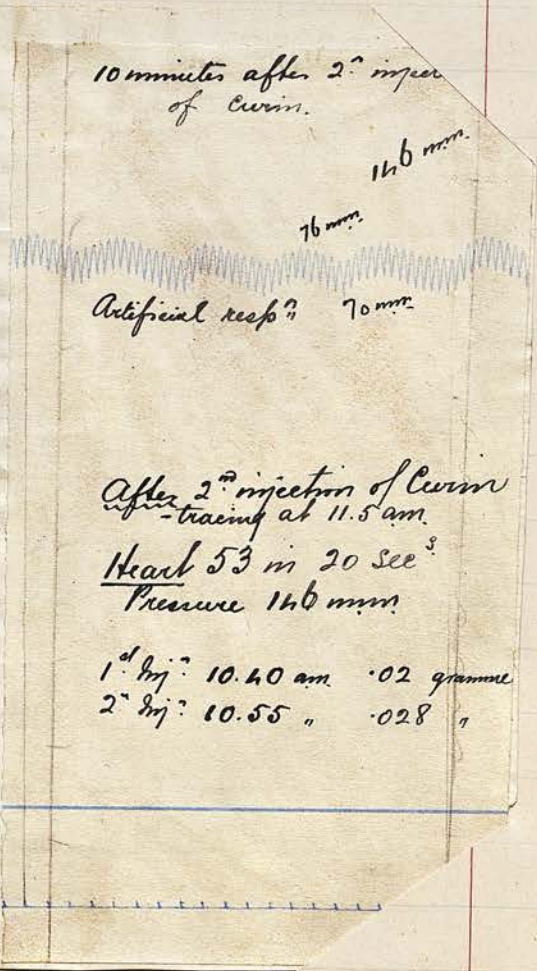 10 minutes after 2ⁿ injec
of Curin.
146 mm.
76 mm.
Artificial respⁿ 70 mm
After 2ⁿᵈ injection of Curin
- tracing at 11.5 am.
Heart 53 in 20 secˢ.
Pressure 146 mm
1ˢᵗ Injⁿ. 10.40 am. .02 gramme
2ⁿ Injⁿ. 10.55 " .028 "